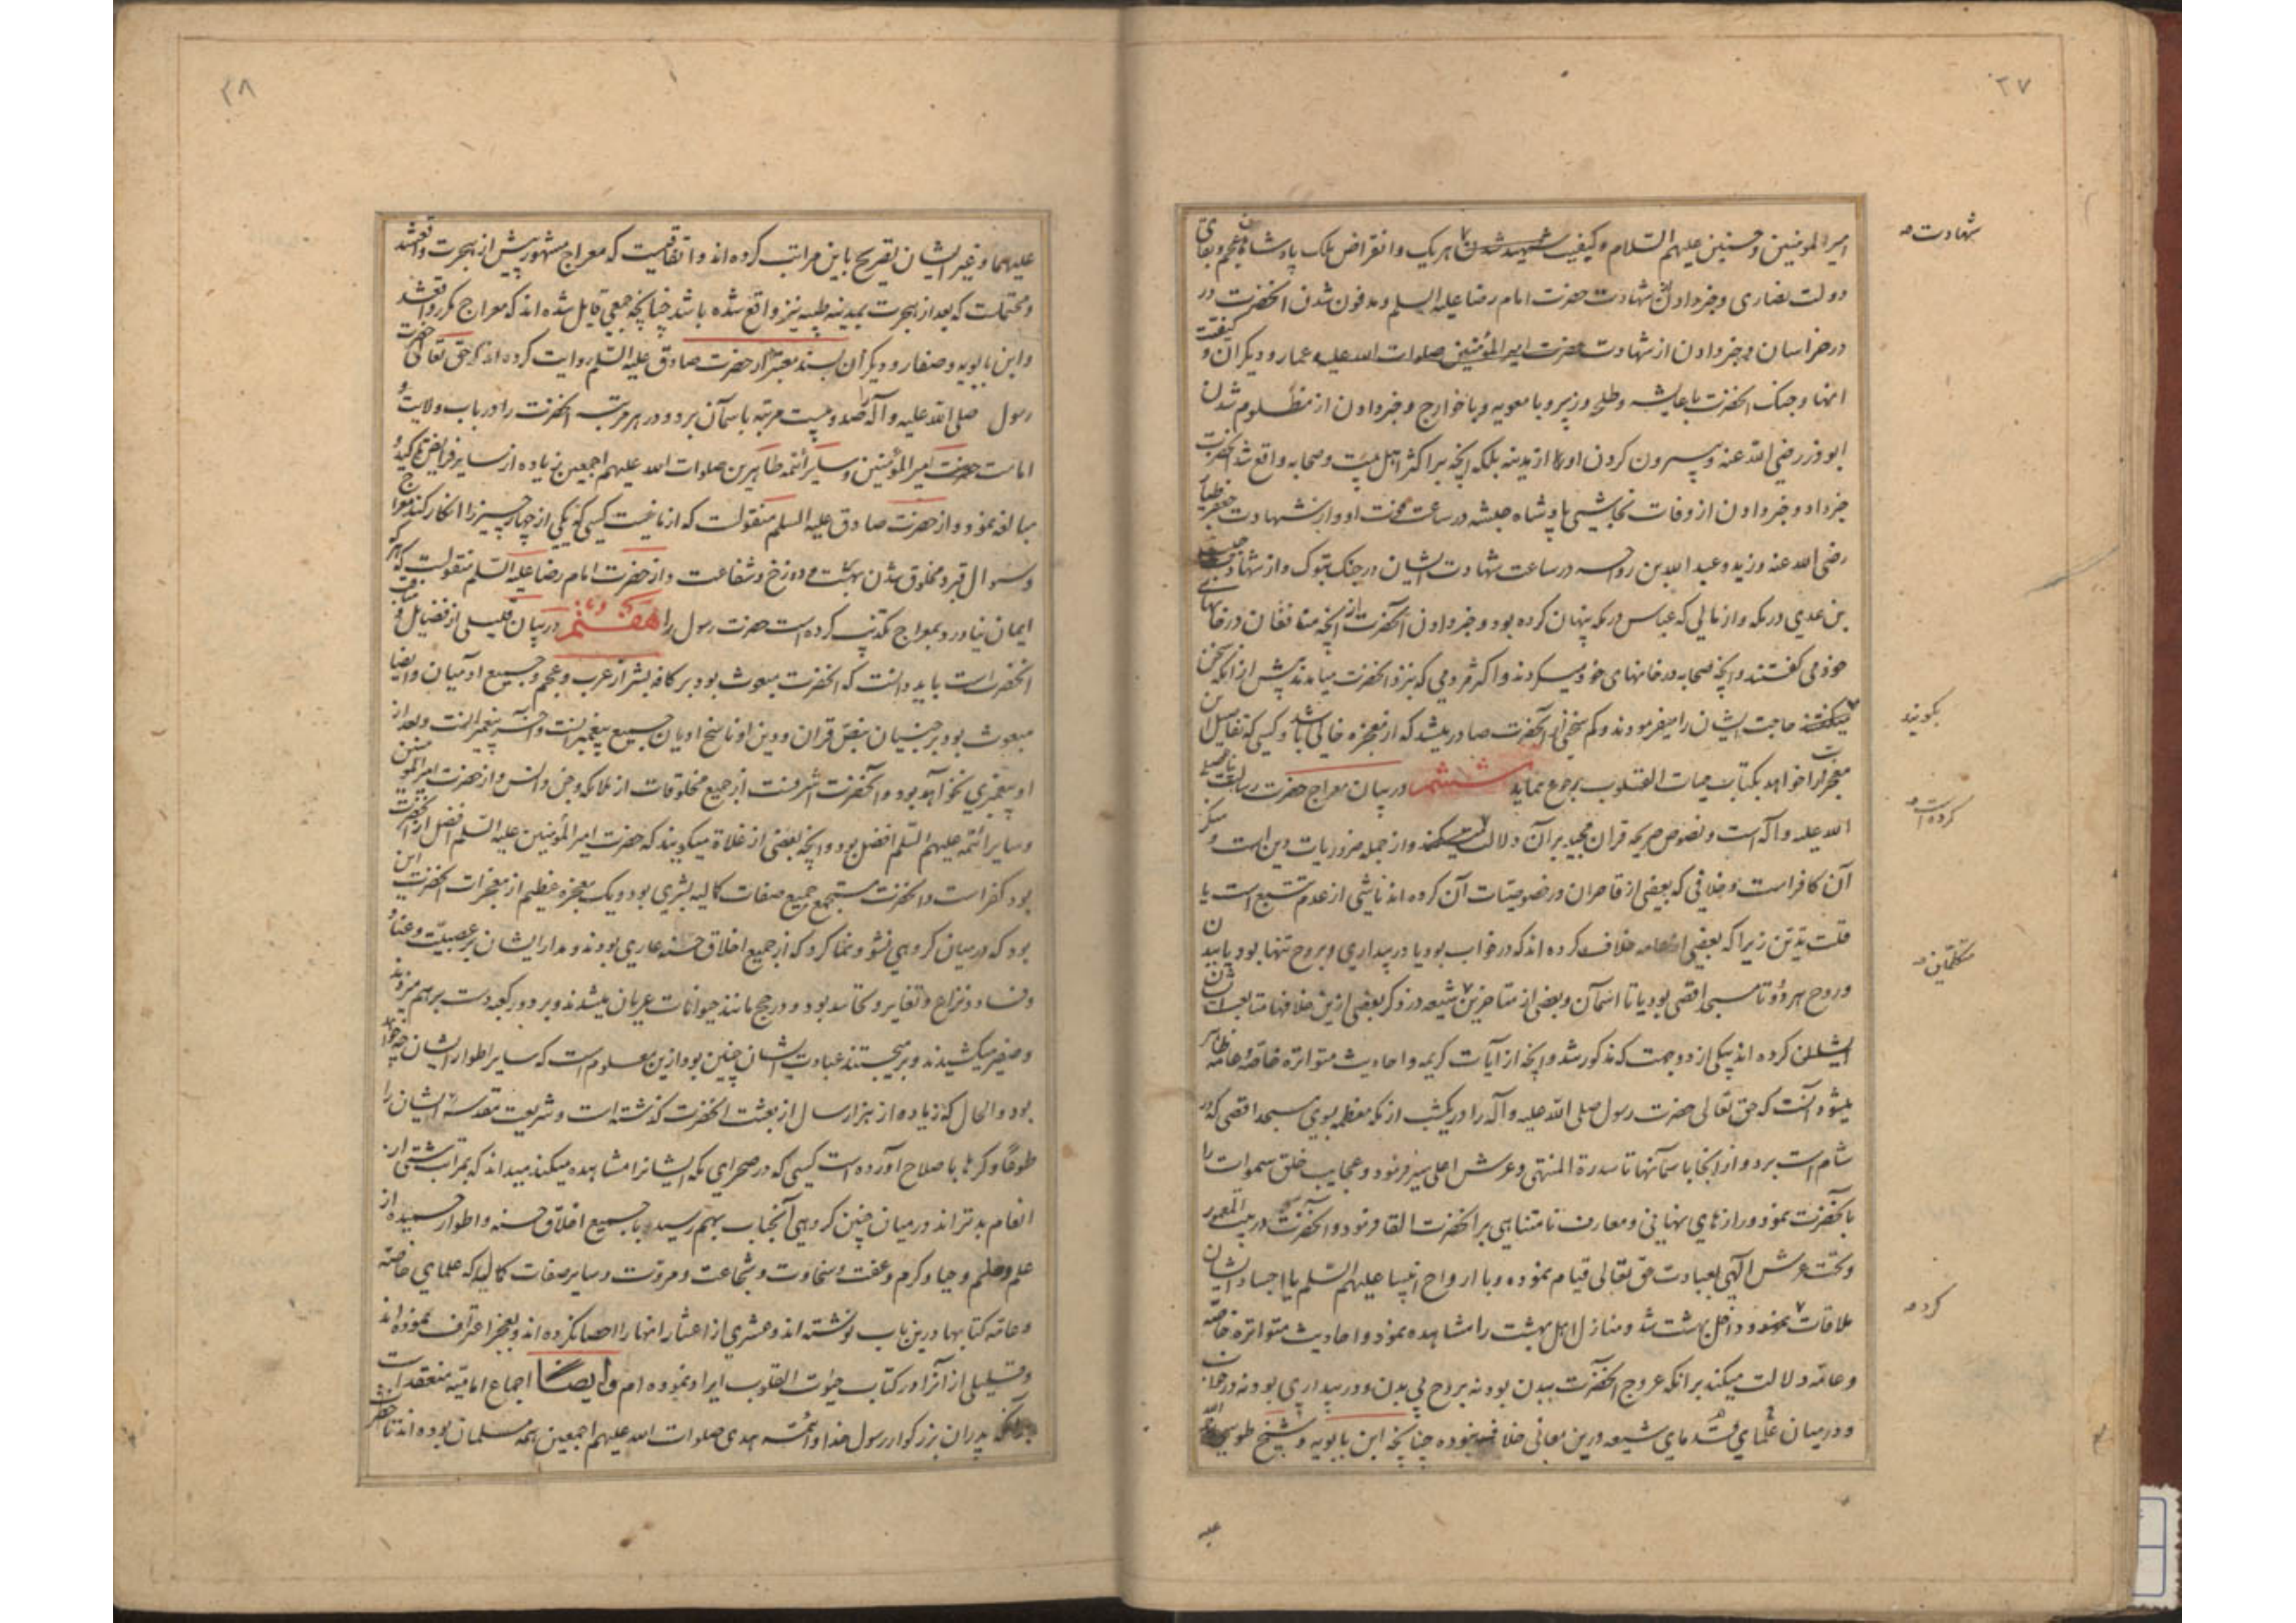 ٢٧
امیرالمومنین و حسنین علیهم السلام و کیفیت شهید شدن هریک و انقراض ملک پادشاهان عجم و بقای
شهادت
دولت نصاری و خبر دادن از شهادت حضرت امام رضا علیه السلم و مدفون شدن آنحضرت در
درخراسان و خبر دادن از شهادت حضرت امیرالمؤمنین صلوات الله علیه و عمار و دیگران و کیفیت
انها و جنک آنحضرت با عایشه و طلحه و زبیر و با معویه و با خوارج و خبر دادن از مظلوم شدن
ابوذر رضی الله عنه و بیرون کردن او را از مدینه بلکه آنچه بر اکثر اهل بیت و صحابه واقع شد آنحضرت
خبر داد و خبر دادن از وفات نجاشی پادشاه حبشه در ساعت فوت او و از شهادت جعفر طیار
رضی الله عنه و زید و عبد الله بن رواحه در ساعت شهادت ایشان در جنک تبوک و از شهادت حبیب
بن عدی در مکه و از مالی که عباس در مکه پنهان کرده بود و خبر دادن آنحضرت از آنچه منافقان در خانهای
خود می گفتند و آنچه صحابه در خانهای خود میکردند و اکثر مردمی که بنزد آنحضرت میامدند پیش از آنکه سخن
بگویند
میگفتند حاجت ایشان را میفرمودند و کم سخنی از آنحضرت صادر میشد که از معجزه خالی باشد و کسی که تفاصیل این
معجزات را خواهد بکتاب حیات القلوب رجوع نماید ششم در بیان معراج حضرت رسالت
الله علیه و آله است و نصوص صریحه قران مجید بر آن دلالت میکند و از جمله ضروریات دین است و منکر
کرده است
آن کافر است و خلافی که بعضی از قاصران در خصوصیات آن کرده اند ناشی از عدم تتبع است یا
قلت تدین زیرا که بعضی از عامه خلاف کرده اند که در خواب بود یا در بیداری و بروح تنها بود یا ببدن
متکلمین
و روح هر دو و تا مسجد اقصی بود یا تا آسمان و بعضی از متاخرین شیعه در ذکر بعضی ازین خلافها متابعت
ایشان کرده اند بیکی از دو جهت که مذکور شد و آنچه از آیات کریمه و احادیث متواتره خاصه و عامه ظاهر
میشود آنست که حق تعالی حضرت رسول صلی الله علیه و آله را در یکشب از مکه معظمه بسوی مسجد اقصی که در
شام است برد و از آنجا باسمانها تا سدرة المنتهی و عرش اعلی سیر فرمود و عجایب خلق سموات را
بآنحضرت نمود و رازهای نهانی و معارف نامتناهی بر آنحضرت القا فرمود و آنحضرت در بیت المعمور
و تحت عرش الهی بعبادت حق تعالی قیام نموده و با ارواح انبیا علیهم السلم یا اجساد ایشان
کرد
ملاقات نمود و داخل بهشت شد و منازل اهل بهشت را مشاهده نمود و احادیث متواتره خاصه
و عامه دلالت میکند بر آنکه عروج آنحضرت ببدن بود نه بروح بی بدن و در بیداری بود نه در خواب
و در میان علمای قدمای شیعه درین معانی خلاف نبوده چنانچه ابن بابویه و شیخ طوسی
علیه
٢٨
علیهما و غیر ایشان تصریح باین مراتب کرده اند و اتفاقیست که معراج مشهور پیش از هجرت واقع شد
و محتملست که بعد از هجرت بمدینه طیبه نیز واقع شده باشد چنانچه جمعی قایل شده اند که معراج مکرر واقع شد
و ابن بابویه و صفار و دیگران بسند معتبر از حضرت صادق علیه السلم روایت کرده اند که حق تعالی حضرت
رسول صلی الله علیه و آله را صد و بیست مرتبه باسمان برد و در هر مرتبه آنحضرت را در باب ولایت و
امامت حضرت امیرالمؤمنین و سایر ائمه طاهرین صلوات الله علیهم اجمعین زیاده از سایر فرایض تاکید و
مبالغه نمود و از حضرت صادق علیه السلم منقولست که از ما نیست کسی که یکی از چهار چیز را انکار کند معراج
و سوال قبر و مخلوق شدن بهشت و دوزخ و شفاعت و از حضرت امام رضا علیه السلم منقولست که هر که
ایمان نیاورد بمعراج تکذیب کرده است حضرت رسول را هفتم در بیان قلیلی از فضایل و مناقب
آنحضرت است باید دانست که آنحضرت مبعوث بود بر کافه بشر از عرب و عجم و جمیع ادمیان و ایضا
مبعوث بود بر جنیان بنص قران و دین او ناسخ ادیان جمیع پیغمبرانست و آخر پیغمبرانست و بعد از
او پیغمبری نخواهد بود و آنحضرت اشرفست از جمیع مخلوقات از ملائکه و جن و انس و از حضرت امیرالمومنین
و سایر ائمه علیهم السلم افضل بود و آنچه بعضی از غلاة میگویند که حضرت امیرالمؤمنین علیه السلم افضل از آنحضرت
بود کفر است و آنحضرت مستجمع جمیع صفات کمالیه بشری بود و یک معجزه عظیم از معجزات آنحضرت این
بود که در میان گروهی نشو و نما کرد که از جمیع اخلاق حسنه عاری بودند و مدار ایشان بر عصبیت و عناد و
و فساد و نزاع و تغایر و تحاسد بود و در حج مانند حیوانات عریان میشدند و بر دور کعبه دست بر هم میزدند
و صفیر میکشیدند و بر میجستند عبادت ایشان چنین بود ازین معلوم است که سایر اطوار ایشان چه خواهد
بود و الحال که زیاده از هزار سال از بعثت آنحضرت گذشته است و شریعت مقدسه ایشان را
طوعا و کرها باصلاح آورده است کسی که در صحرای مکه ایشانرا مشاهده میکند میداند که بمراتب شتی از
انعام بدتراند در میان چنین گروهی آنجناب بهم رسید با جمیع اخلاق حسنه و اطوار حمیده از
علم و حلم و حیا و کرم و عفت و سخاوت و شجاعت و مروت و سایر صفات کمالیه که علمای خاصه
و عامه کتابها درین باب نوشته اند و عشری از اعشار انها را احصا نکرده اند و بعجز اعتراف نموده اند
و قلیلی از آنرا در کتاب حیوت القلوب ایراد نموده ام وایضا اجماع امامیه منعقد است
بر آنکه پدران بزرکوار رسول خدا و ائمه هدی صلوات الله علیهم اجمعین همه مسلمان بوده اند تا حضرت